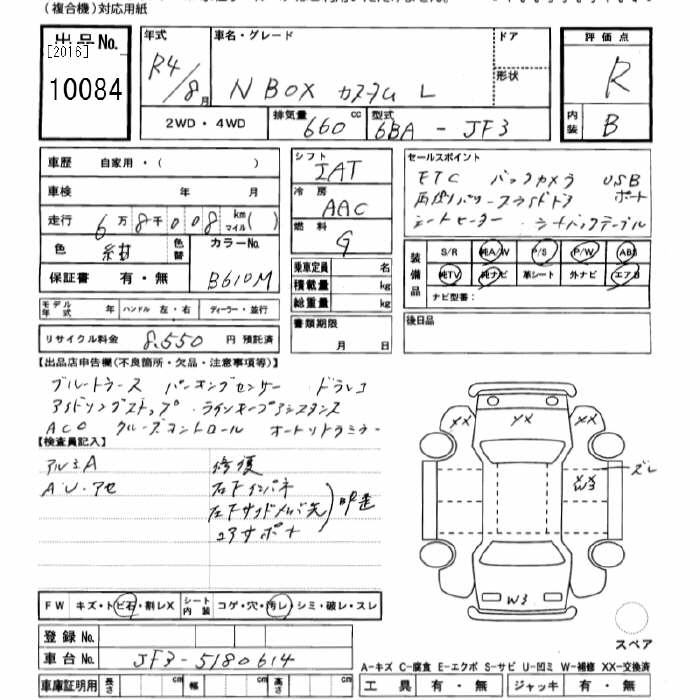 (複合機)対応用紙
出品No.
[2016]
10084
年式
R4/8月
車名・グレード
N BOX カスタム L
ドア
形状
評価点
R
内装
B
2WD・4WD
排気量
660 cc
型式
6BA - JF3
車歴 自家用・( )
車検 年 月
走行 6万8千008 km マイル( )
色 紺
色替
カラーNo.
B610M
保証書 有・無
モデル年式 年 ハンドル 左・右 ディーラー・並行
リサイクル料金 8,550 円 預託済
シフト
IAT
冷房
AAC
燃料
G
乗車定員 名
積載量 kg
総重量 kg
書類期限
月 日
セールスポイント
ETC バックカメラ USBポート
両側パワースライドドア
シートヒーター シートバックテーブル
装備品
S/R 純A/W P/S P/W ABS
純TV 純ナビ 革シート 外ナビ エアB
ナビ型番:
後日品
【出品店申告欄(不良箇所・欠品・注意事項等)】
ブルートゥース パーキングセンサー ドラレコ
アイドリングストップ ラインキープアシスタンス
ACC クルーズコントロール オートリトラミラー
【検査員記入】
アルミA
AU.アセ
修復
右下インパネ
左下サイドメンバ先
コアサポート
XX
XX
XX
W3
ズレ
W3
スペア
FW キズ・トビ石・割レX
シート内装 コゲ・穴・汚レ・シミ・破レ・スレ
登録No.
車台No. JF3-5180614
車庫証明用 長さ cm 幅 cm 高さ cm
A-キズ C-腐食 E-エクボ S-サビ U-凹ミ W-補修 XX-交換済
工具 有・無 ジャッキ 有・無